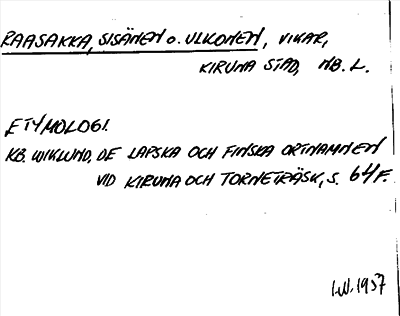 RAASAKKA, SISÄNEN o. ULKONEN, VIKAR,
KIRUNA STAD, NB. L.
ETYMOLOGI.
KB. WIKLUND, DE LAPSKA OCH FINSKA ORTNAMNEN
VID KIRUNA OCH TORNETRÄSK, S. 64 F.
I.W. 1957